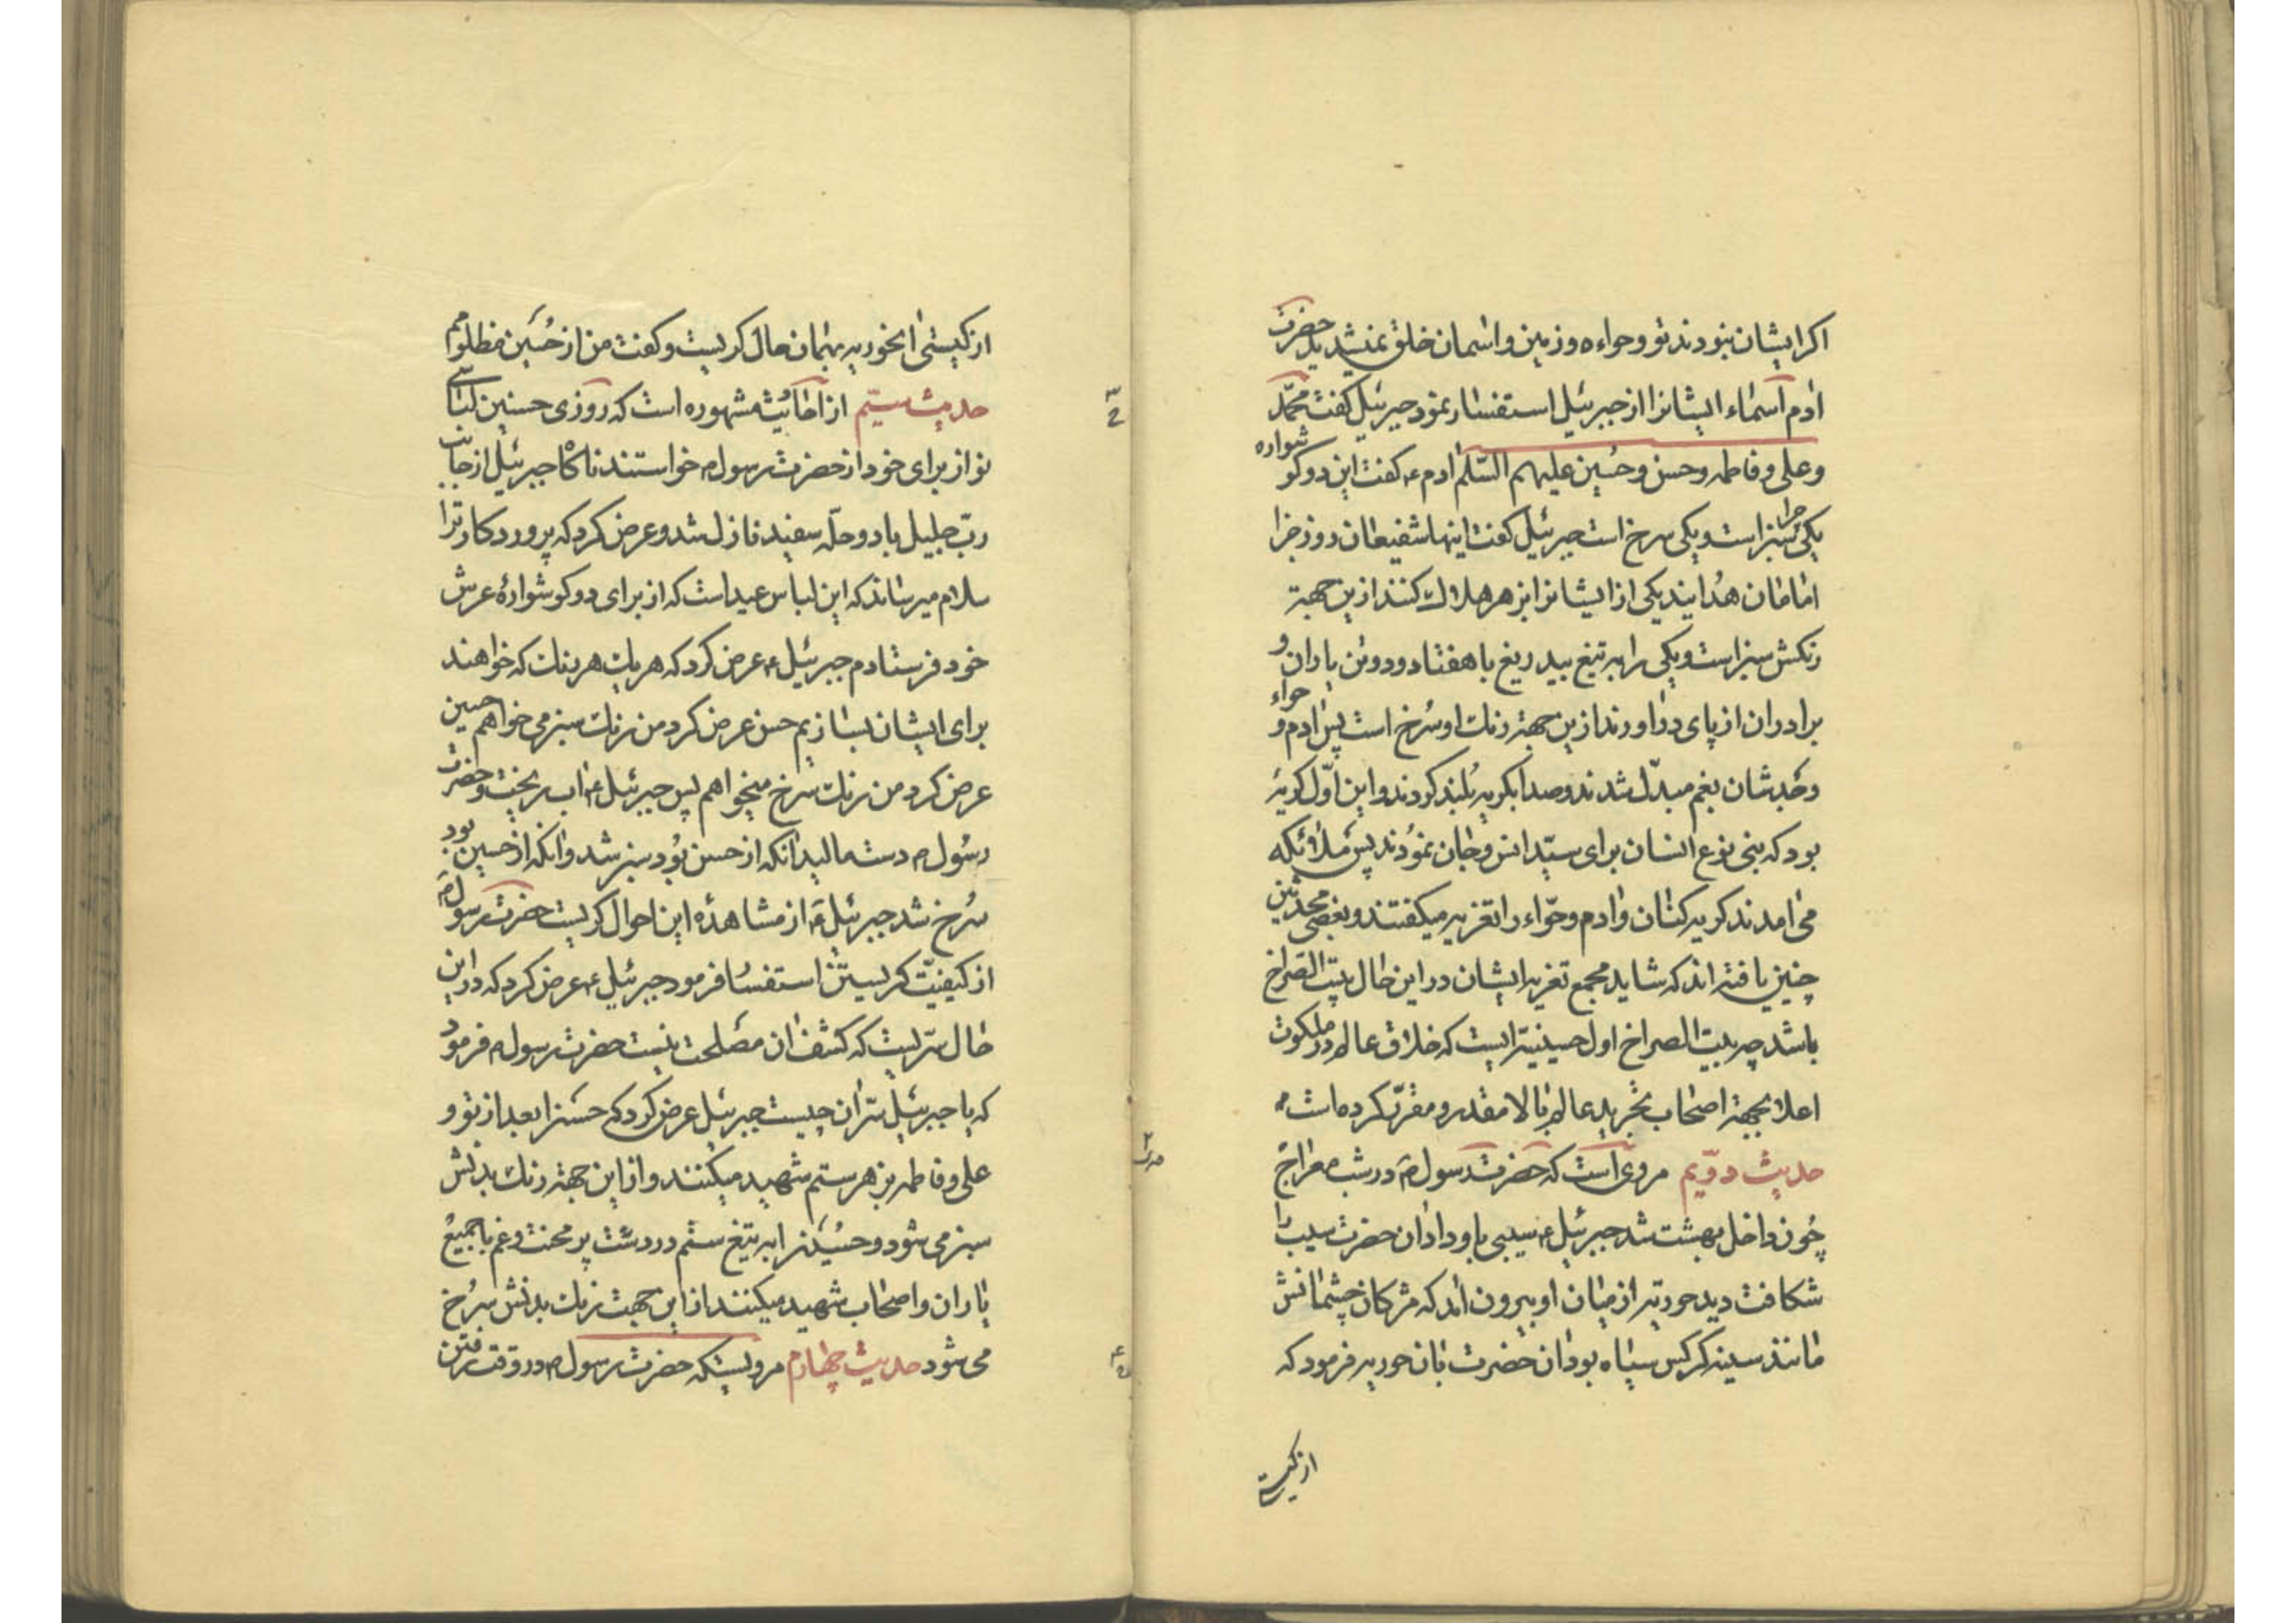 اکر ایشان نبودند تو و حواء و زمین و اسمان خلق نمیشدید حضرت
ادم اسماء ایشانرا از جبرئیل استفسار نمود جبرئیل کفت محمّد
و علی و فاطمه و حسن و حسین علیهم السّلم ادم ع کفت این دو کوشواره
یکی چرا سبز است و یکی سرخ است جبرئیل کفت اینها شفیعان روز جزا
امامان هُدایند یکی از ایشانرا بزهر هلاک کنند ازین جهة
رنکش سبز است و یکی را به تیغ بیدریغ با هفتاد و دو تن یاران و
برادران از پای در اورند ازین جهة رنک او سُرخ است پس ادم و حواء
و خُدشان بغم مبدّل شدند و صدا بکریه بُلند کردند و این اوّل کریۀ
بود که بنی نوع انسان برای سیّد انس و جان نمودند پس ملائکه
می امدند کریه کنان و ادم و حوّاء را تعزیه میکفتند و بعضی محدثین
چنین یافته اند که شاید مجمع تعزیه ایشان در این حال بیت الصراخ
باشد چه بیت الصراخ اول حسینیّه ایست که خلاق عالم در ملکوت
اعلا بجهة اصحاب تجرید عالم بالا مقدر و مقرّر کرده است
حدیث دوّیم مروی است که حضرت رسول ص در شب معراج
چون داخل بهشت شد جبرئیل ع سیبی باو داد ان حضرت سیب را
شکافت دید حوریّه از میان او بیرون امد که مژکان چشمانش
مانند سینه کرکس سیاه بود ان حضرت بان حوریه فرمود که
از کیستی
از کیستی انحوریه بهمان حال کریست و کفت من از حُسین مظلومم
حدیث سیّم از احادیث مشهوره است که روزی حسنین لباسی
نو از برای خود از حضرت رسول ص خواستند ناکاه جبرئیل از جانب
ربّ جلیل با دو حلّه سفید نازل شد و عرض کرد که پروردکار ترا
سلام میرساند که این لباس عید است که از برای دو کوشوارۀ عرش
خود فرستادم جبرئیل ع عرض کرد که هر یک هر رنک که خواهند
برای ایشان بسازیم حسن عرض کرد من رنک سبز می خواهم حسین
عرض کرد من رنک سرخ میخواهم پس جبرئیل ع اب ریخت و حضرت
رسول ص دست مالید انکه از حسن بود سبز شد و انکه از حسین بود
سُرخ شد جبرئیل ع از مشاهدۀ این احوال کریست حضرت رسول ص
از کیفیّت کریستن استفسار فرمود جبرئیل ع عرض کرد که در این
حال سرّیست که کشف ان مصلحت نیست حضرت رسول ص فرمود
که یا جبرئیل سرّ ان چیست جبرئیل عرض کرد که حسنرا بعد از تو و
علی و فاطمه بزهر ستم شهید میکنند و از این جهة رنک بدنش
سبز می شود و حُسینرا به تیغ ستم در دشت پر محنت و غم با جمیع
یاران و اصحاب شهید میکنند از این جهت رنک بدنش سُرخ
می شود حدیث چهارم مرویستکه حضرت رسول ص در وقت رفتن